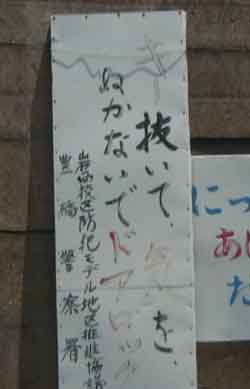 キー抜いて、気を、
ぬかないでドアロック
岩西校区防犯モデル地区推進協議
豊橋警察署
につ
あ
た